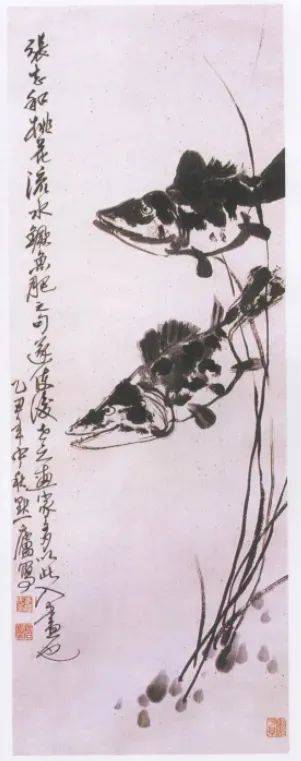 張志和桃花流水鱖魚肥之句遂使後世之畫家多以此入畫也
乙丑年中秋 寫